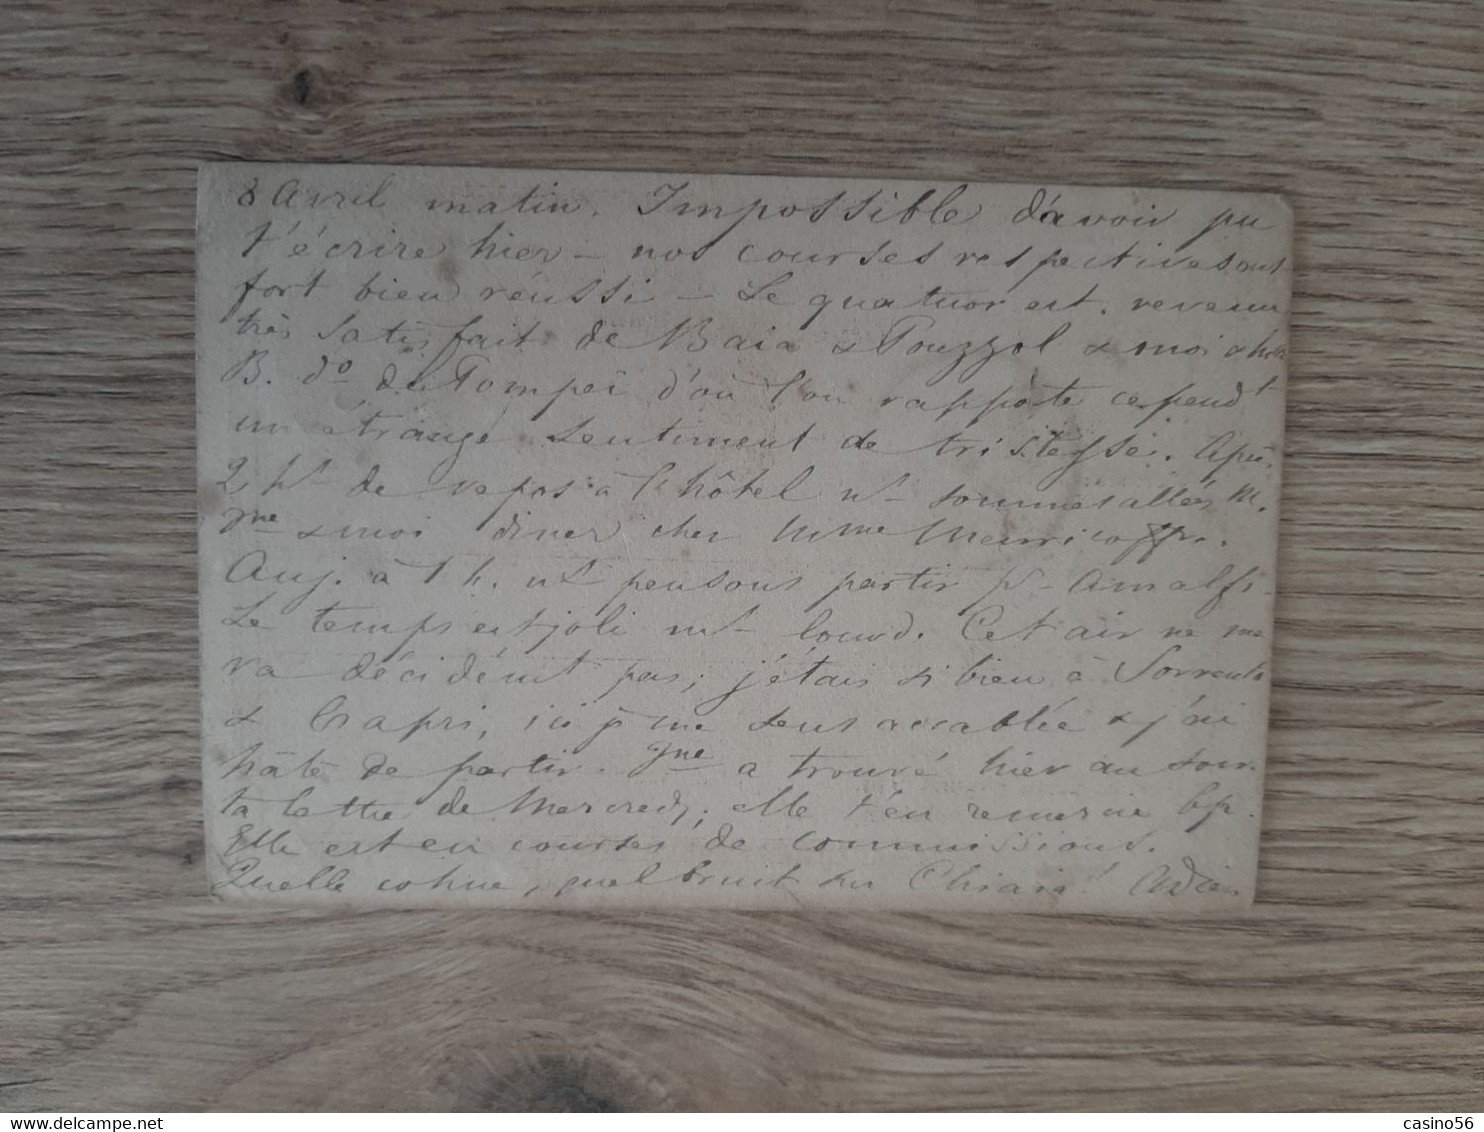 8 Avril matin. Impossible d'avoir pu
t'écrire hier – nos courses respectives ont
fort bien réussi – Le quatuor est revenu
très satisfait de Baia & Pouzzol & moi &
B. do de Pompeï d'où l'on rapporte cependt
un étrange sentiment de tristesse. Après
2 hs de repos à l'hôtel ns sommes allées M.
Jne & moi diner chez Mme Meuricoffre.
Auj. à 1 h. ns pensons partir pr Amalfi.
Le temps est joli ms lourd. Cet air ne me
va décidémt pas; j'étais si bien à Sorrente
& Capri, ici je me sens accablée & j'ai
hâte de partir. Jne a trouvé hier au soir
ta lettre de Mercredi; elle t'en remercie bp.
Elle est en courses de commissions.
Quelle cohue, quel bruit sur Chiaia! Adieu
casino56